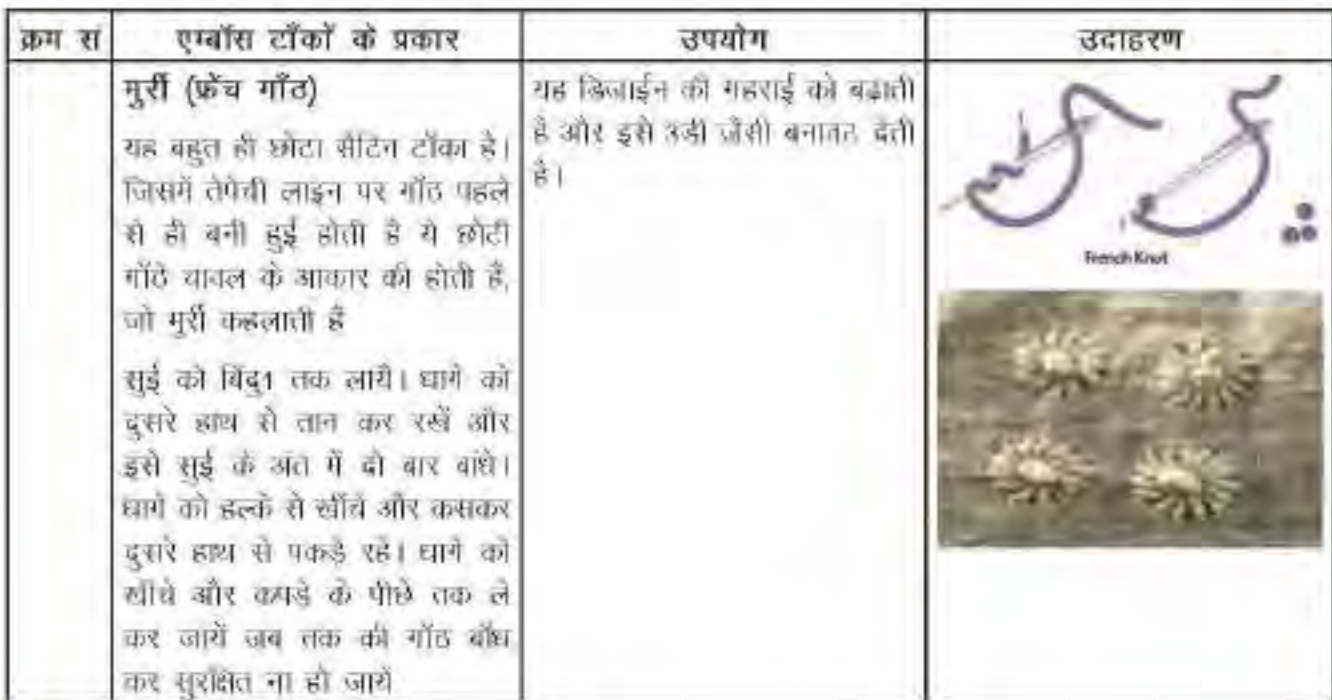 क्रम सं
एम्बॉस टाँकों के प्रकार
उपयोग
उदाहरण
मुर्री (फ्रेंच गाँठ)
यह बहुत ही छोटा सैटिन टाँका है।
जिसमें तेपेची लाइन पर गाँठ पहले
से ही बनी हुई होती है ये छोटी
गाँठे चावल के आकार की होती हैं,
जो मुर्री कहलाती हैं
सुई को बिंदु1 तक लायें। धागे को
दुसरे हाथ से तान कर रखें और
इसे सुई के अंत में दो बार बांधे।
धागे को हल्के से खींचे और कसकर
दुसरे हाथ से पकड़े रहे। धागे को
खींचे और कपड़े के पीछे तक ले
कर जायें जब तक की गाँठ बाँध
कर सुरक्षित ना हो जायें
यह डिजाईन की गहराई को बढ़ाती
है और इसे 3डी जैसी बनावट देती
है।
French Knot